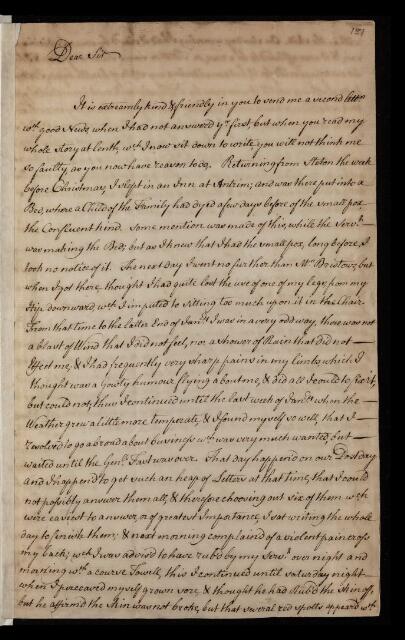 121
Dear Sir
It is extreamly kind & friendly in you to send me a second letter
wth good News, when I had not answerd yr first, but when you read my
whole story at lenth, wch I now sit down to write you will not think me
so faulty, as you now have reason to do. Returning from the week
before Christmas, I slept in an Inn at Antrim; and was there put into a
Bed, where a Child of the Family had dyed a few days before of the small pox
the Confluent kind. Some mention was made of this, while the Servt
was making the Bed; but as I knew that I had the small pox, long before, I
took no notice of it. The next day I went no further than Mr Bristows, but
when I got there, thought I had quite lost the use of one of my legs, from my
Hip downward, wch I imputed to sitting too much upon it in the Chair.
From that time to the latter End of Janry I was in a very odd way, there was not
a blast of Wind that I did not feel, nor a Shower of Rain that did not
Effect me, & I had frequently very sharp pains in my limbs, which I
thought was a Gouty humour flying about me, & did all I could to fix it,
but could not; thus I continued until the last week of Janry when the
Weather grew a little more temperate, & I found myself so well, that I
resolved to go abroad about business wch was very much wanted, but
waited until the Genl Fast was over. That day happend on our Post day
and I happend to get such an heap of Letters at that time, that I could
not possibly answer them all, & therefore choosing out six of them wch
were easiest to answer, or of greatest Importance, I sat writing the whole
day to finish them; & next morning complaind of a violent pain cross
my back; wch I was advised to have rubb'd by my Servt over night and
morning wth a course Towell, this I continued until saturday night
when I perceaved myself grown sore, & thought he had Rubb'd the Skin off,
but he affirmd the Skin was not broke, but that several red spotts appeard wch